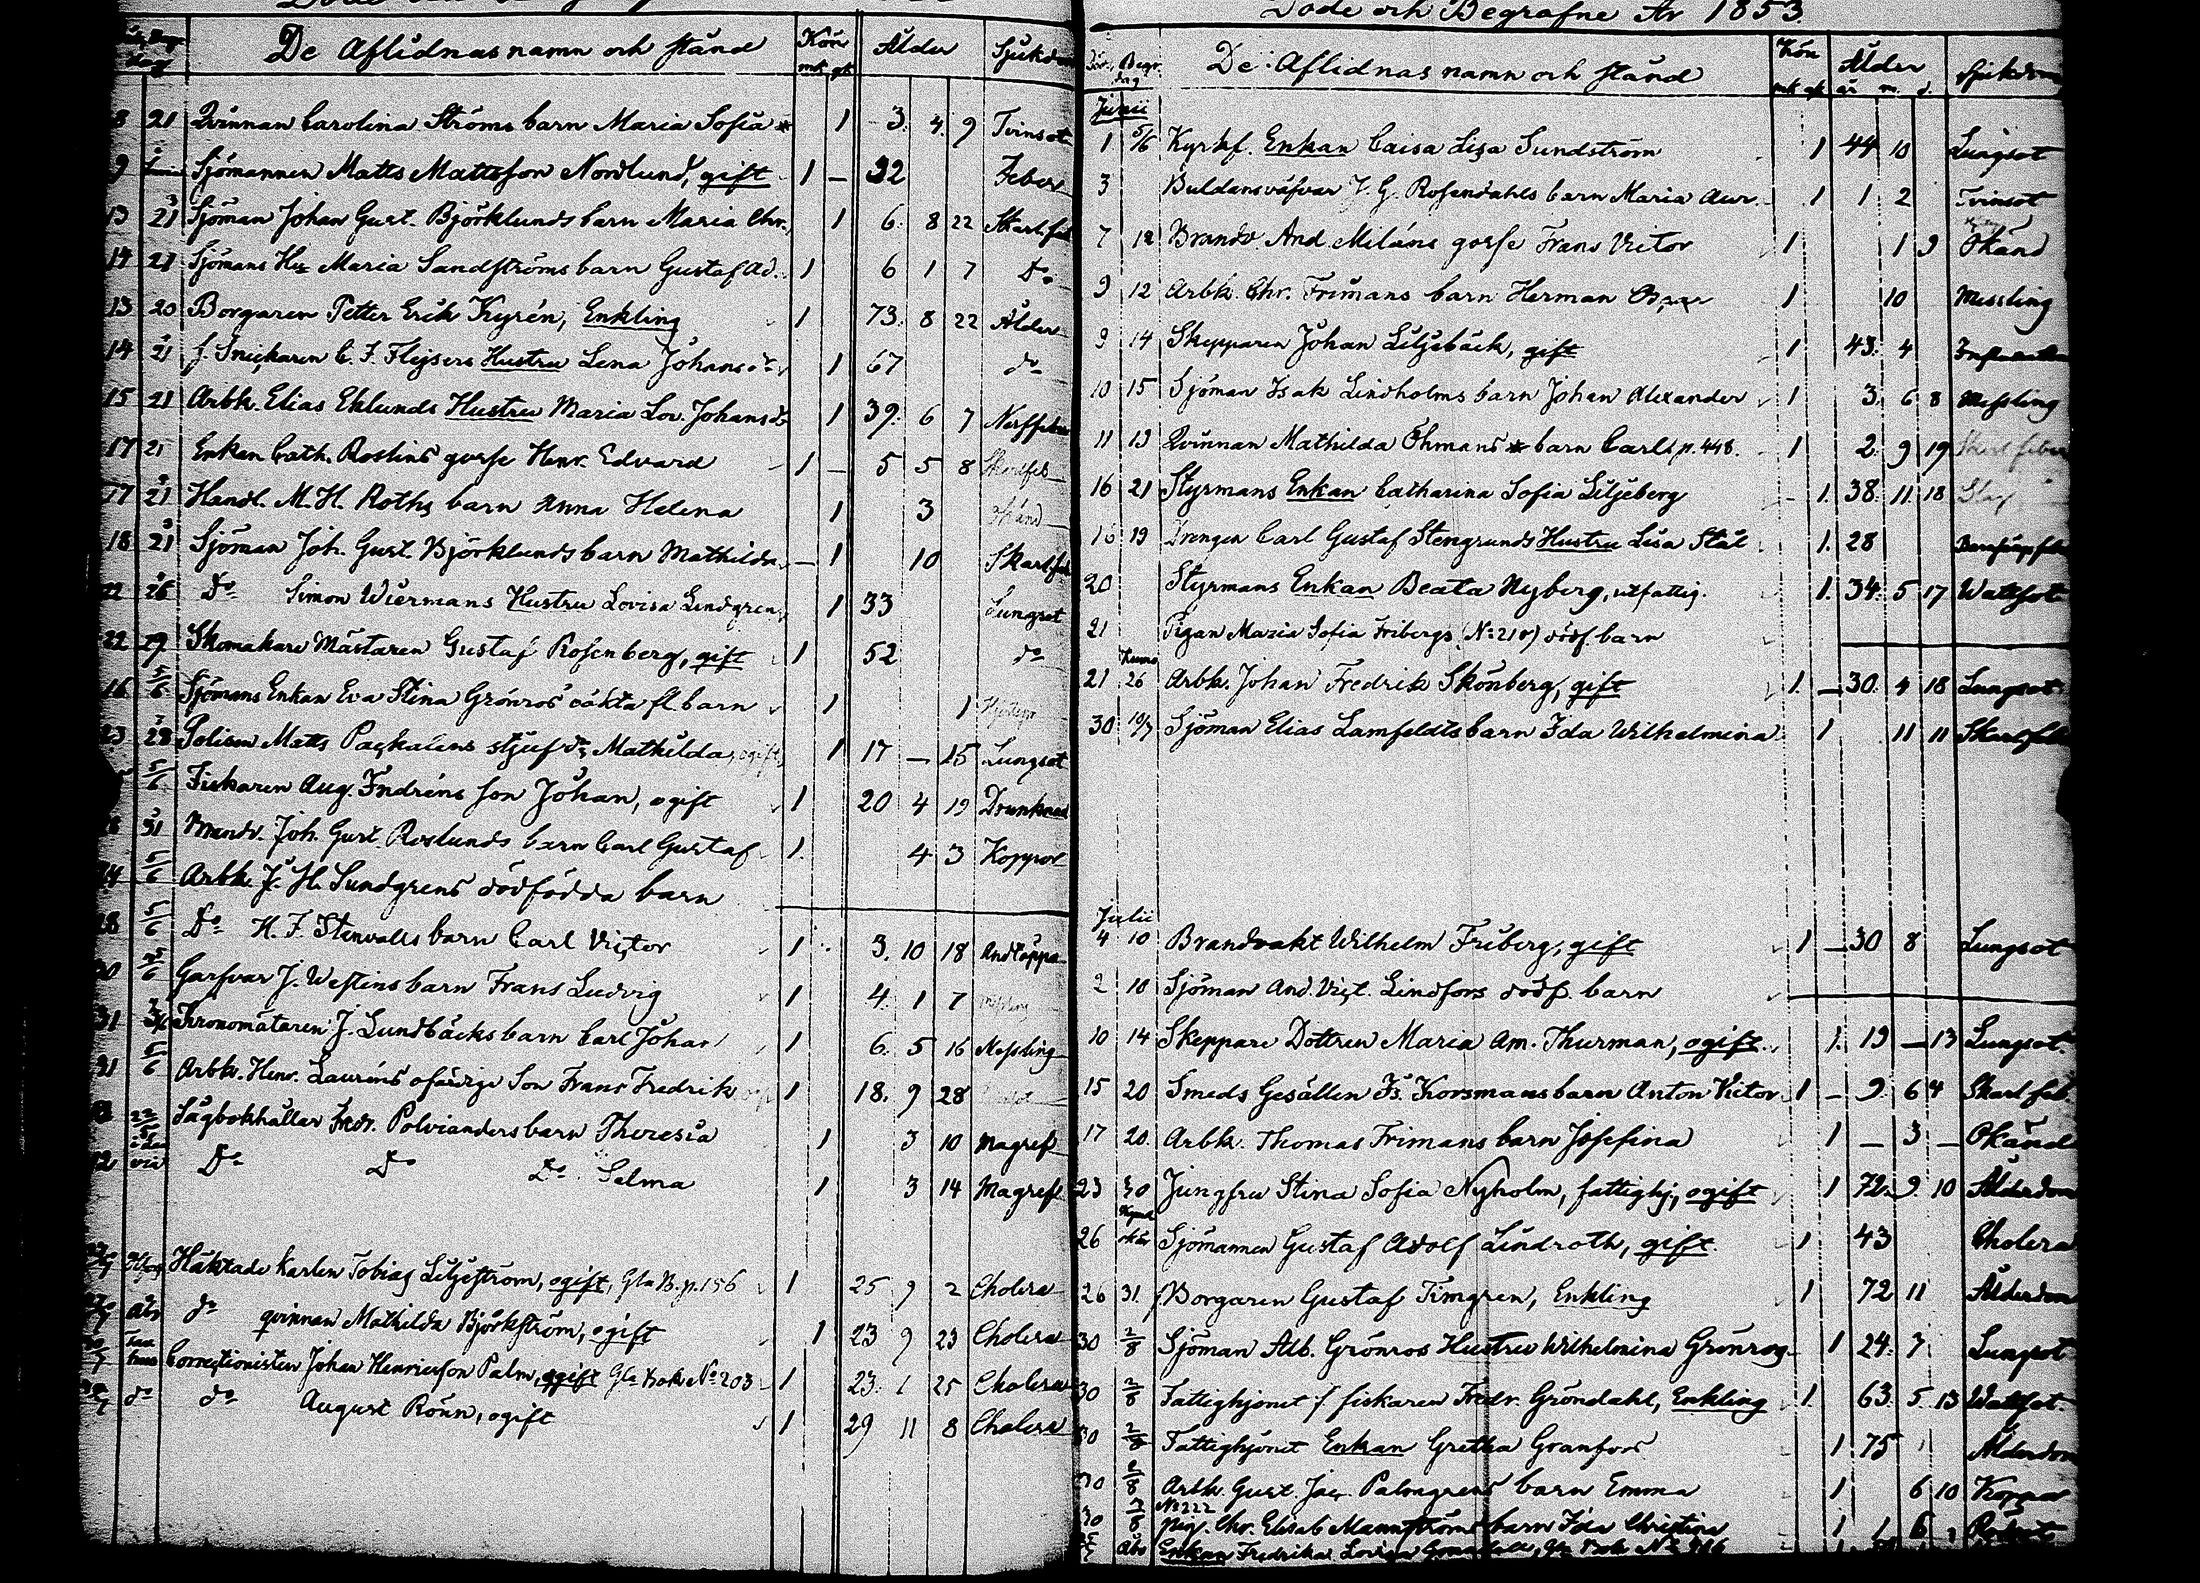 De Aflidnas namn och stånd Kön mk qk Ålder Sjukdom
8 21 Qvinnan Carolina Ströms barn Maria Sofia 1 3. 4. 9 Tvinsot
9 Sjömannen Matts Mattsson Nordlund, gift 1 – 32 Feber
13 21 Sjöman Johan Gust. Björklunds barn Maria Chr. 1 6. 8 22 Skarl.feb
14 21 Sjömans Maria Sandströms barn Gustaf Ad. 1 6 1 7 do
13 20 Borgaren Petter Erik Kyrén, Enkling 1 73. 8 22 Ålder
14 21 f. Snickaren C. F. Flejsers Hustru Lena Johansdr 1 67 do
15 21 Arbk. Elias Eklunds Hustru Maria Lov. Johansdr 1 39. 6 7 Nerffeber
17 21 Enkan Cath. Roslins gosse Henr. Edvard 1 – 5 5 8
17 21 Handl. M. H. Roths barn Anna Helena 1 3 okänd
18 21 Sjöman Joh. Gust. Björklunds barn Mathilda – 1 10 Skarl.feb
22 26 Do Simon Wiermans Hustru Lovisa Lindgren 1 33 Lungsot
22 29 Skomakare Mästaren Gustaf Rosenberg, gift 1 52 do
16 5/6 Sjömans Enkan Eva Stina Grönros oäkta fl. barn 1 1
23 28 Polisen Matts styfdr Mathilda, ogift 1 17 – 15 Lungsot
5/6 Fiskaren Aug. Indréns son Johan, ogift 1 20 4 19 Drunknad
31 Brandv. Joh. Gust. Roslunds barn Carl Gustaf 1. 4 3 Koppor
24 5/6 Arbk. J. H. Sundgrens dödfödda barn
28 5/6 Do H. F. Stenvalls barn Carl Victor 1 3. 10 18 Andtäppa
30 5/6 Garfvar J. Westins barn Frans Ludvig 1 4. 1 7
31 Kronomätaren J. Lundbäcks barn Carl Johan 1 6. 5 16 Messling
31 5/6 Arbk. Henr. Lauréns ofärdige Son Frans Fredrik 1 18. 9 28
Sågbokhållar Fredr. Polvianders barn Theresia 1 3 10 Magref
12 Do Do Do Selma 1 3 14 Magref
Häktade karlen Tobias Liljeström, ogift, Gla B. p. 156 1 25 9 2 Cholera
Åbo do qvinnan Mathilda Björkström, ogift 1 23 9 23 Cholera
Correctionisten Johan Henricsson Palm, ogift Gla Bok No 203 1 23. 1 25 Cholera
do do August Rönn, ogift 1 29 11 8 Cholera
Döde och Begrafne År 1853.
Död. Begr. dag De Aflidnas namn och stånd Kön mk qk Ålder år m. d. Sjukdom
Junii
1 5/6 Kyrkf. Enkan Caisa Lisa Sundström 1 44 10 Lungsot
3 Buldansväfvar J. G. Rosendahls barn Maria Aur. 1 1 2 Tvinsot
7 12 Brandv. And Miléns gosse Frans Victor 1 1 9 Okänd
9 12 Arbk. Chr. Frimans barn Herman 1 10 Messling
9 14 Skepparen Johan Liljebäck, gift 1 43. 4
10 15 Sjöman Isak Lindholms barn Johan Alexander 1 3. 6 8 Messling
11 19 Qvinnan Mathilda Öhmans barn Carl p. 448. 1 2. 9 19 Skarl feber
16 21 Styrmans Enkan Catharina Sofia Liljeberg – 1. 38. 11. 18 Slag
16 19 Drengen Carl Gustaf Stengrunds Hustru Lisa Stål 1. 28
20 Styrmans Enkan Beata Nyberg, utfattig. 1. 34. 5 17 Wattsot
21 Pigan Maria Sofia Fribergs (No 210) dödf. barn
21 26 Arbk. Johan Fredrik Skönberg, gift 1. – 30. 4 18 Lungsot
30 10/7 Sjöman Elias Lamfeldts barn Ida Wilhelmina 1 11 11 Skarlfeb
Julii
4 10 Brandvakt Wilhelm Friberg, gift 1 – 30 8 Lungsot
2 10 Sjöman And. Vict. Lindfors dödf. barn
10 14 Skeppare Dottren Maria Am. Thurman, ogift 1. 19 – 13 Lungsot
15 20 Smeds Gesällen Fs. Korsmans barn Anton Victor 1 – 9. 6 4 Skarl feb.
17 20. Arbk. Thomas Frimans barn Josefina 1 – 3 – Okänd
23 30 Jungfru Stina Sofia Nyholm, fattighj., ogift 1 72. 9 10 Ålderdom
26 Sjömannen Gustaf Adolf Lindroth, gift. 1 43 Cholera
26 31. Borgaren Gustaf Timgren, Enkling 1 72 11 Ålderdom
30 2/8 Sjöman Alb. Grönros Hustru Wilhelmina Grönros 1 24. 7 Lungsot
30 2/8 Fattighjonet f. fiskaren Fredr. Gröndahl, Enkling 1. 63. 5 13 Wattsot
30 2/8 Fattighjonet Enkan Gretha Granfors 1 75 Ålderdom
30 2/8 Arbk. Gust. Jac. Palmgrens barn Emma 1 6 10 Koppor
No 222
30 2/8 pig. Chr. Elisab Mannströms barn Ida Christina 1 1 6 Rödsot
Åbo Enkan Fredrika Lovisa